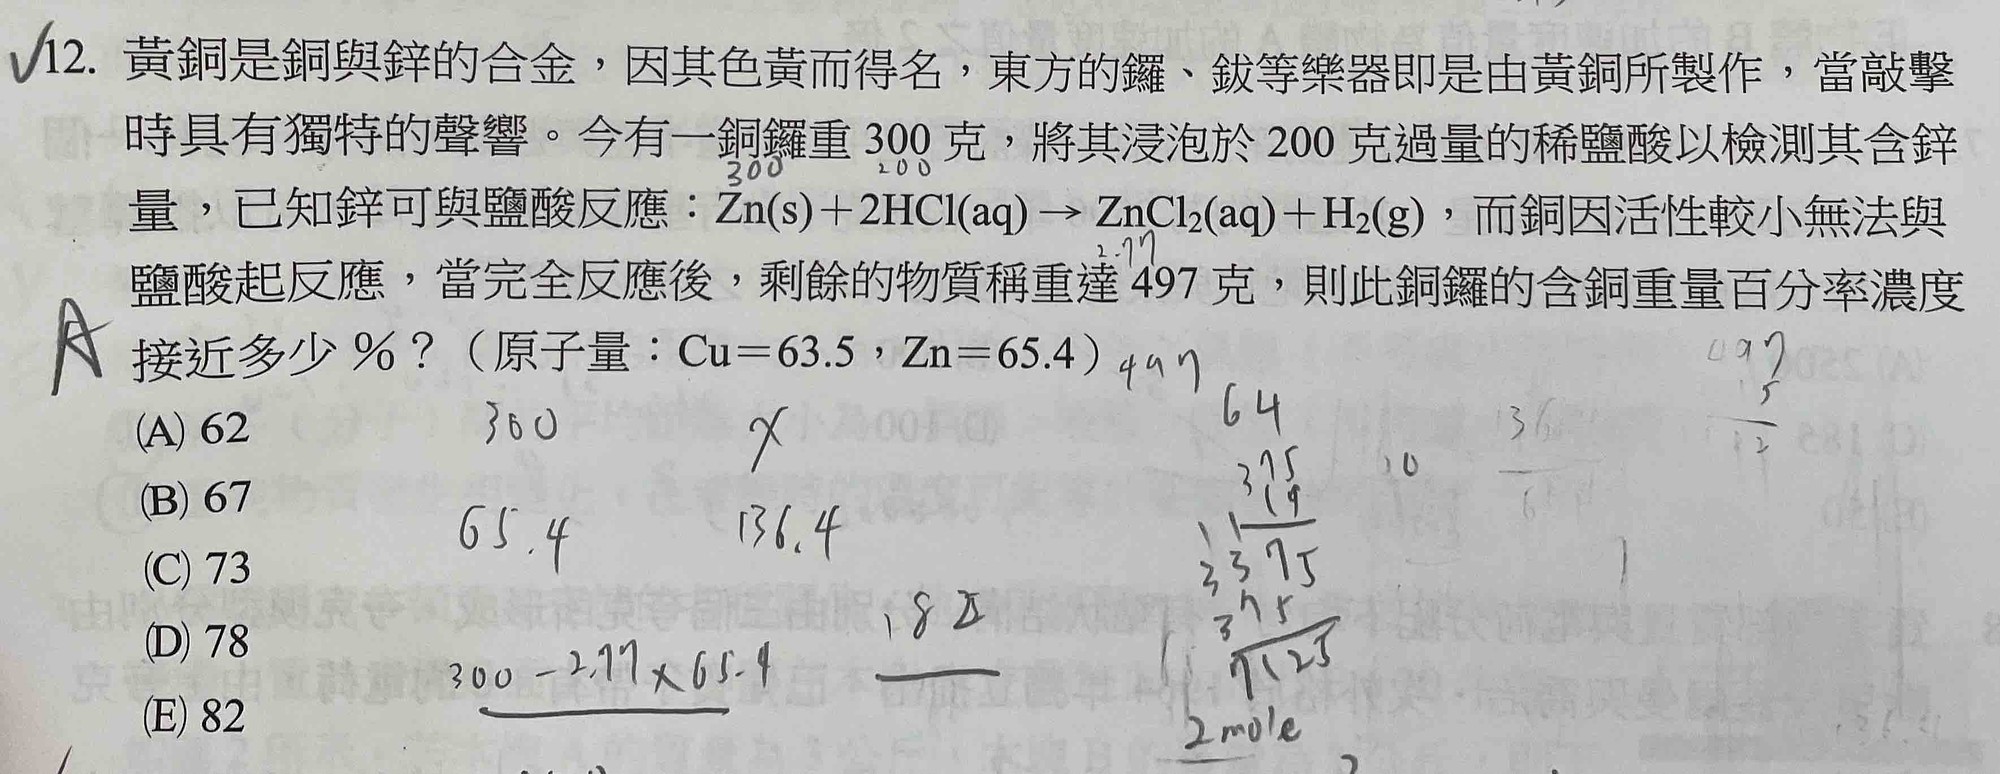 ✓12. 黃銅是銅與鋅的合金，因其色黃而得名，東方的鑼、鈸等樂器即是由黃銅所製作，當敲擊
時具有獨特的聲響。今有一銅鑼重 300 克，將其浸泡於 200 克過量的稀鹽酸以檢測其含鋅
300 200
量，已知鋅可與鹽酸反應：Zn(s)＋2HCl(aq) → ZnCl₂(aq)＋H₂(g)，而銅因活性較小無法與
2.77
鹽酸起反應，當完全反應後，剩餘的物質稱重達 497 克，則此銅鑼的含銅重量百分率濃度
A
接近多少 %？（原子量：Cu＝63.5，Zn＝65.4）
497
(A) 62
300 x 64
(B) 67
375
19
65.4 136.4
(C) 73
3375
375
7125
(D) 78
300-2.77×65.4
(E) 82
2mole